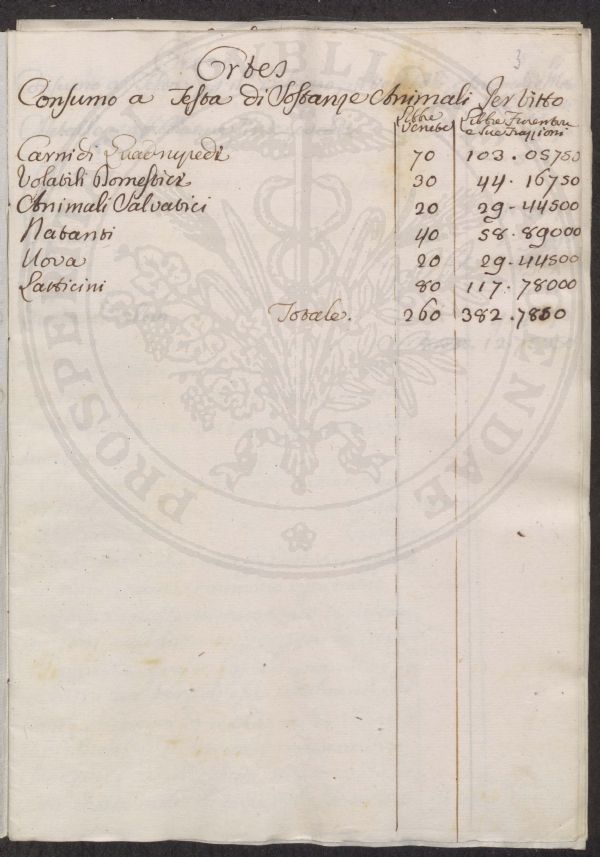 3
Ortes
Consumo a Testa di Sostanze Animali Per Vitto
Libbre Venete
Libbre Fiorentine e Sue Frazioni
Carni di Quadrupedi 70 103.05750
Volatili Domestici 30 44.16750
Animali Salvatici 20 29.44500
Natanti 40 58.89000
Uova 20 29.44500
Latticini 80 117.78000
Totale. 260 382.7850
PROSPE
PUBLIC
ENDAE